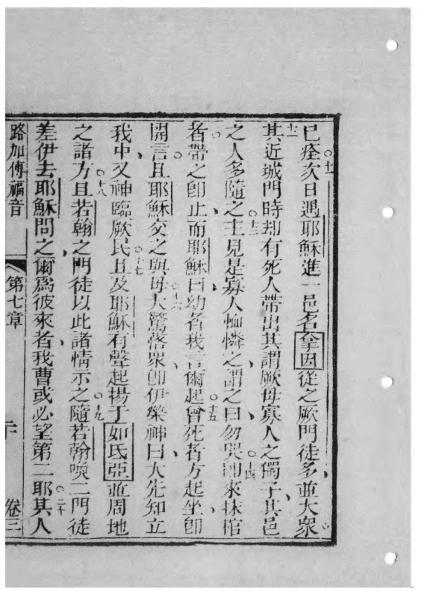 已○十一痊次日遇耶穌進一邑名拿因從之厥門徒多並大衆
○十二其近城門時却有死人帶出其謂厥母寡人之獨子其邑
之人多隨之○十三主見是寡人恤憐之謂之曰勿哭○十四卽來抹棺
者帶之卽止而耶穌曰幼者我言爾起○十五曾死者方起坐卽
開言且耶穌交之與母○十六大驚落衆卽伊榮神曰大先知立
我中又神臨厥民○十七且及耶穌有聲起揚于如氐亞並周地
之諸方○十八且若翰之門徒以此諸情示之○十九隨若翰喚二門徒
差伊去耶穌問之爾爲彼來者我曹或必望第二耶○二十其人
路加傳福音 第七章 二十 卷三